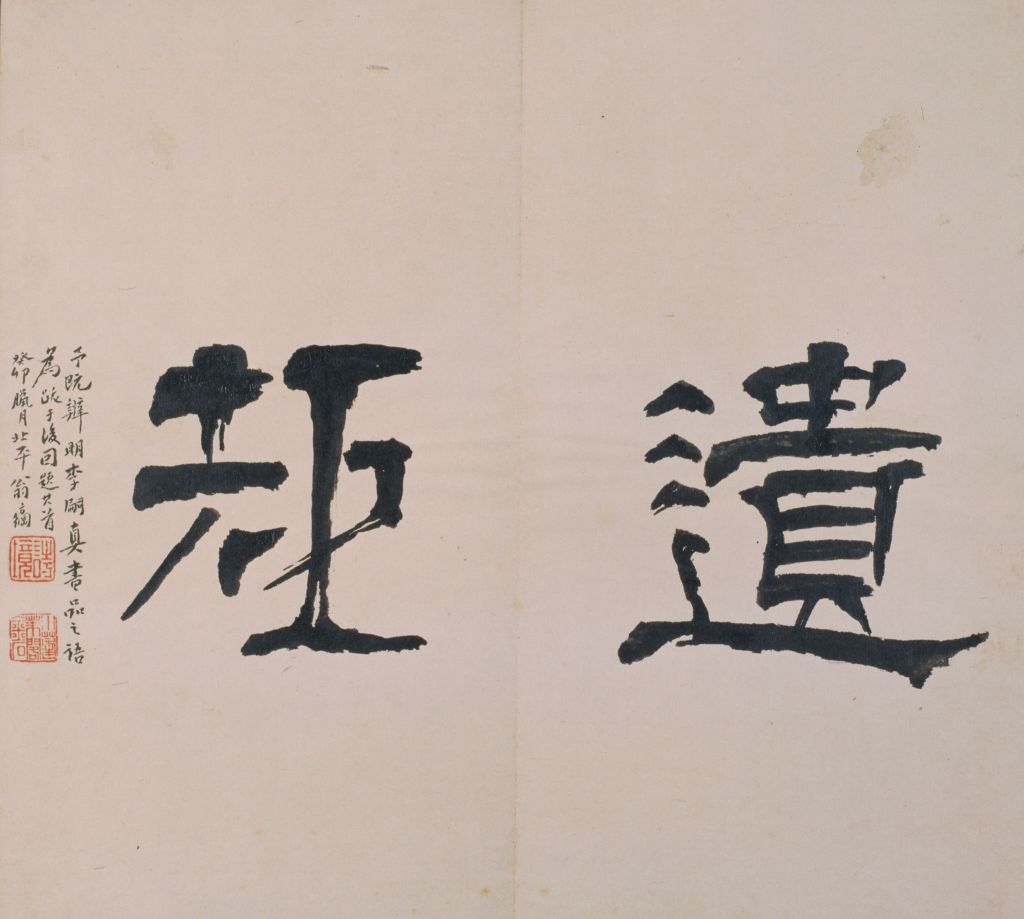 遺矩
予既辨明李嗣真書品之語
為跋于後因題其首
癸卯臘月北平翁方綱
詩境